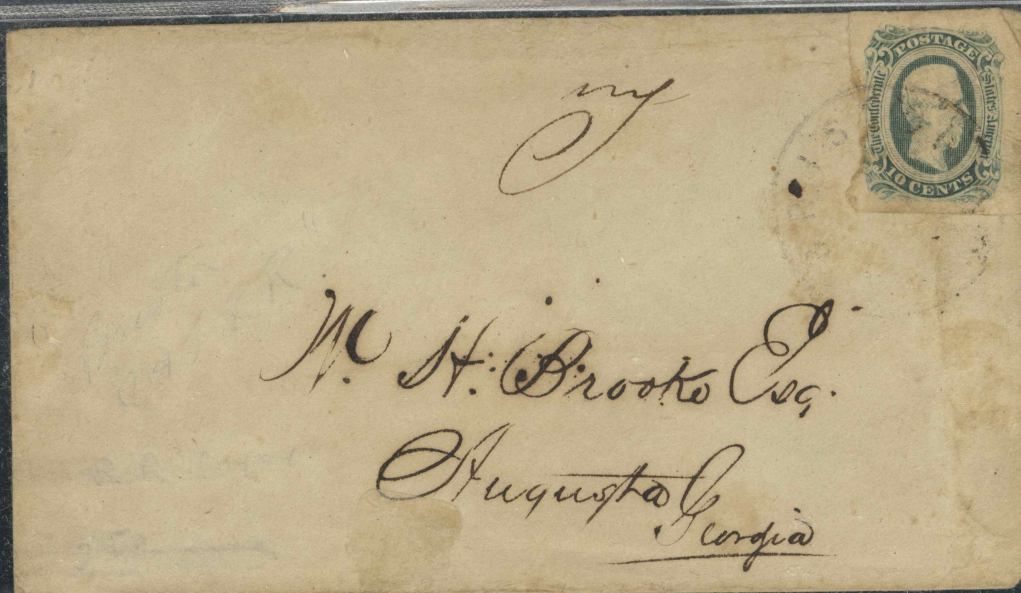 POSTAGE
The Confederate
States America
10 CENTS
W. H. Brooks Esq.
Augusta
Georgia